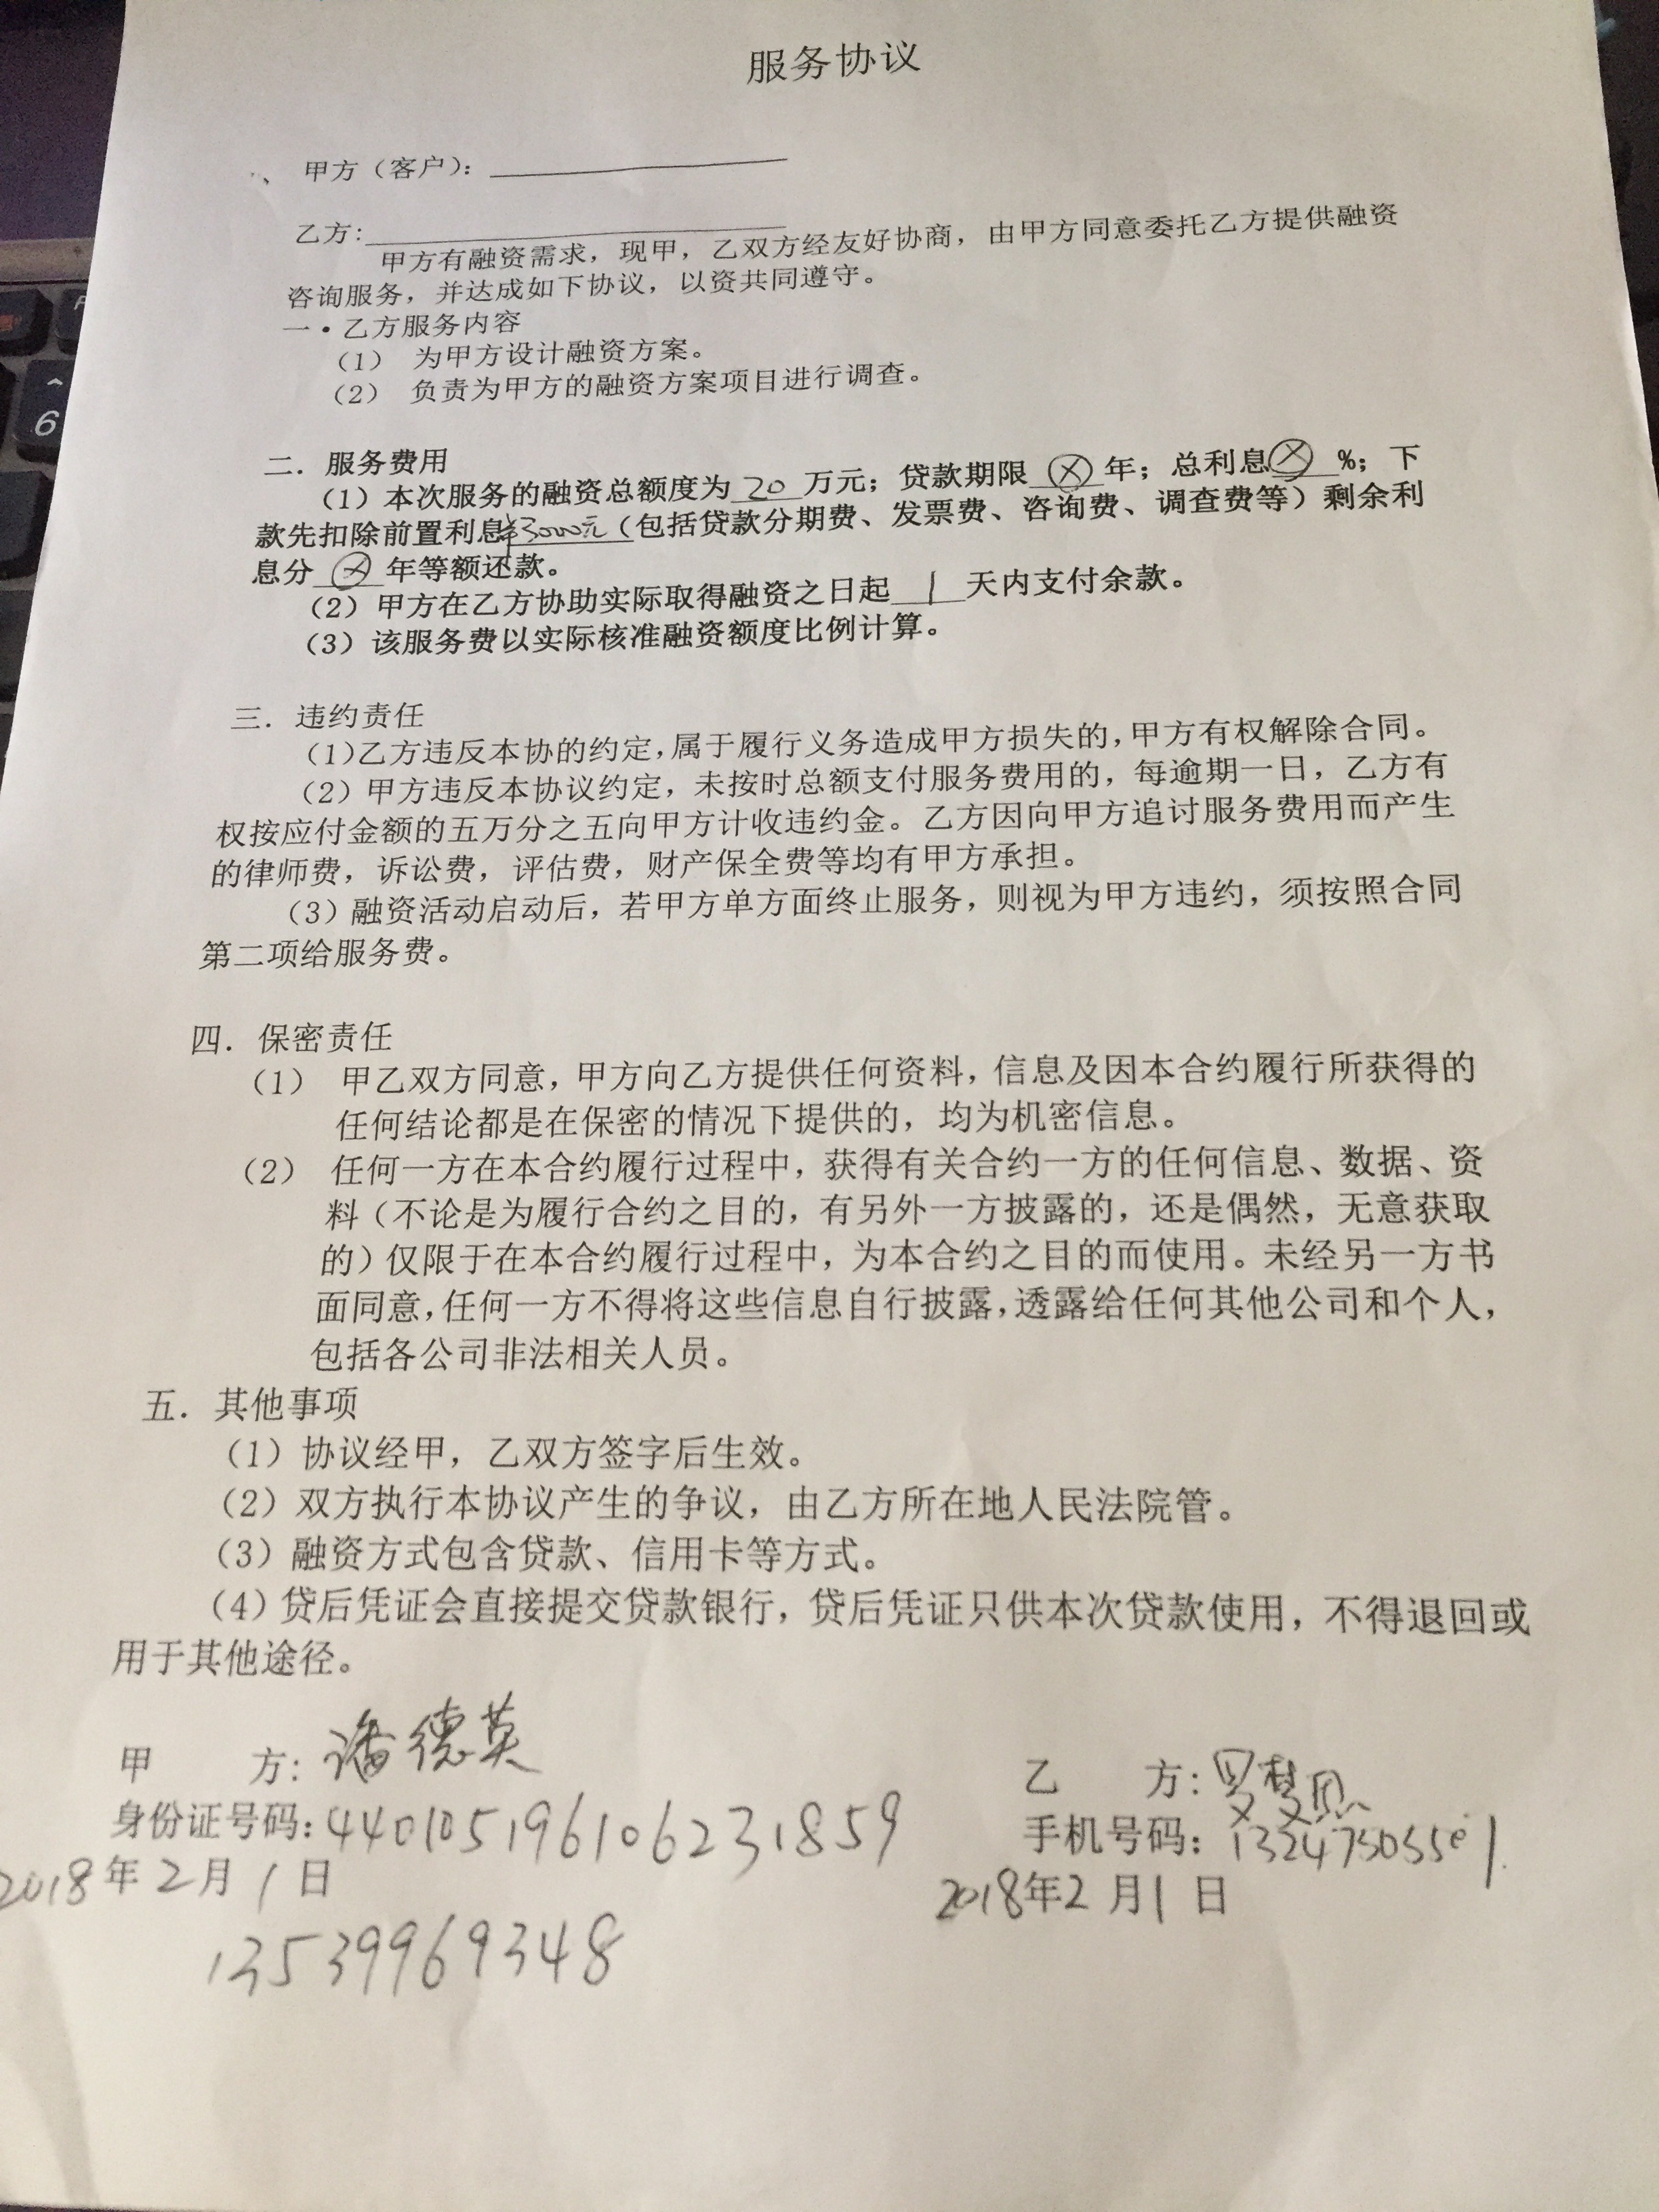 服务协议
甲方（客户）：
乙方：
甲方有融资需求，现甲，乙双方经友好协商，由甲方同意委托乙方提供融资
咨询服务，并达成如下协议，以资共同遵守。
一·乙方服务内容
（1） 为甲方设计融资方案。
（2） 负责为甲方的融资方案项目进行调查。
二．服务费用
（1）本次服务的融资总额度为 20 万元；贷款期限 ⓧ 年；总利息 ⓧ %；下
款先扣除前置利息¥3000元（包括贷款分期费、发票费、咨询费、调查费等）剩余利
息分 ⓧ 年等额还款。
（2）甲方在乙方协助实际取得融资之日起 1 天内支付余款。
（3）该服务费以实际核准融资额度比例计算。
三．违约责任
（1）乙方违反本协的约定，属于履行义务造成甲方损失的，甲方有权解除合同。
（2）甲方违反本协议约定，未按时总额支付服务费用的，每逾期一日，乙方有
权按应付金额的五万分之五向甲方计收违约金。乙方因向甲方追讨服务费用而产生
的律师费，诉讼费，评估费，财产保全费等均有甲方承担。
（3）融资活动启动后，若甲方单方面终止服务，则视为甲方违约，须按照合同
第二项给服务费。
四．保密责任
（1） 甲乙双方同意，甲方向乙方提供任何资料，信息及因本合约履行所获得的
任何结论都是在保密的情况下提供的，均为机密信息。
（2） 任何一方在本合约履行过程中，获得有关合约一方的任何信息、数据、资
料（不论是为履行合约之目的，有另外一方披露的，还是偶然，无意获取
的）仅限于在本合约履行过程中，为本合约之目的而使用。未经另一方书
面同意，任何一方不得将这些信息自行披露，透露给任何其他公司和个人，
包括各公司非法相关人员。
五．其他事项
（1）协议经甲，乙双方签字后生效。
（2）双方执行本协议产生的争议，由乙方所在地人民法院管。
（3）融资方式包含贷款、信用卡等方式。
（4）贷后凭证会直接提交贷款银行，贷后凭证只供本次贷款使用，不得退回或
用于其他途径。
甲 方：潘德英
身份证号码：440105196106231859
2018年2月1日
13539969348
乙 方：
手机号码：
2018年2月1日